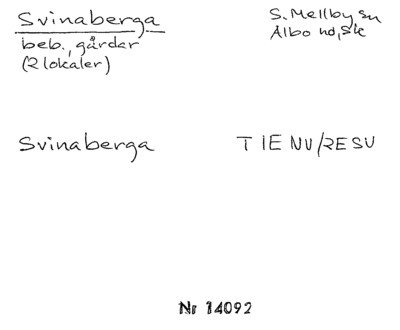 Svinaberga
S. Mellby sn
beb., gårdar
Albo hd, Sk
(2 lokaler)
Svinaberga
TIENU/RESU
Nr 14092